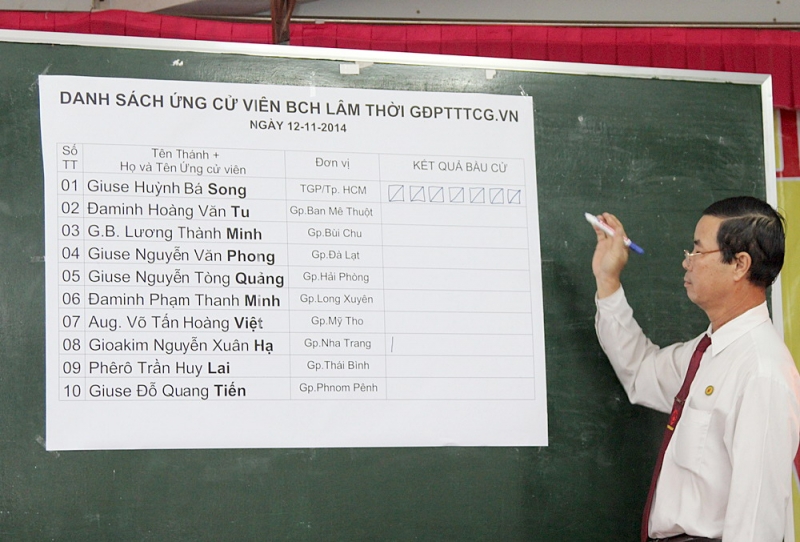 DANH SÁCH ỨNG CỬ VIÊN BCH LÂM THỜI GĐPTTTCG.VN
NGÀY 12-11-2014
Số TT Tên Thánh + Họ và Tên Ứng cử viên Đơn vị KẾT QUẢ BẦU CỬ
01 Giuse Huỳnh Bá Song TGP/Tp. HCM
02 Đaminh Hoàng Văn Tu Gp.Ban Mê Thuột
03 G.B. Lương Thành Minh Gp.Bùi Chu
04 Giuse Nguyễn Văn Phong Gp.Đà Lạt
05 Giuse Nguyễn Tòng Quảng Gp.Hải Phòng
06 Đaminh Phạm Thanh Minh Gp.Long Xuyên
07 Aug. Võ Tấn Hoàng Việt Gp.Mỹ Tho
08 Gioakim Nguyễn Xuân Hạ Gp.Nha Trang
09 Phêrô Trần Huy Lai Gp.Thái Bình
10 Giuse Đỗ Quang Tiến Gp.Phnom Pênh